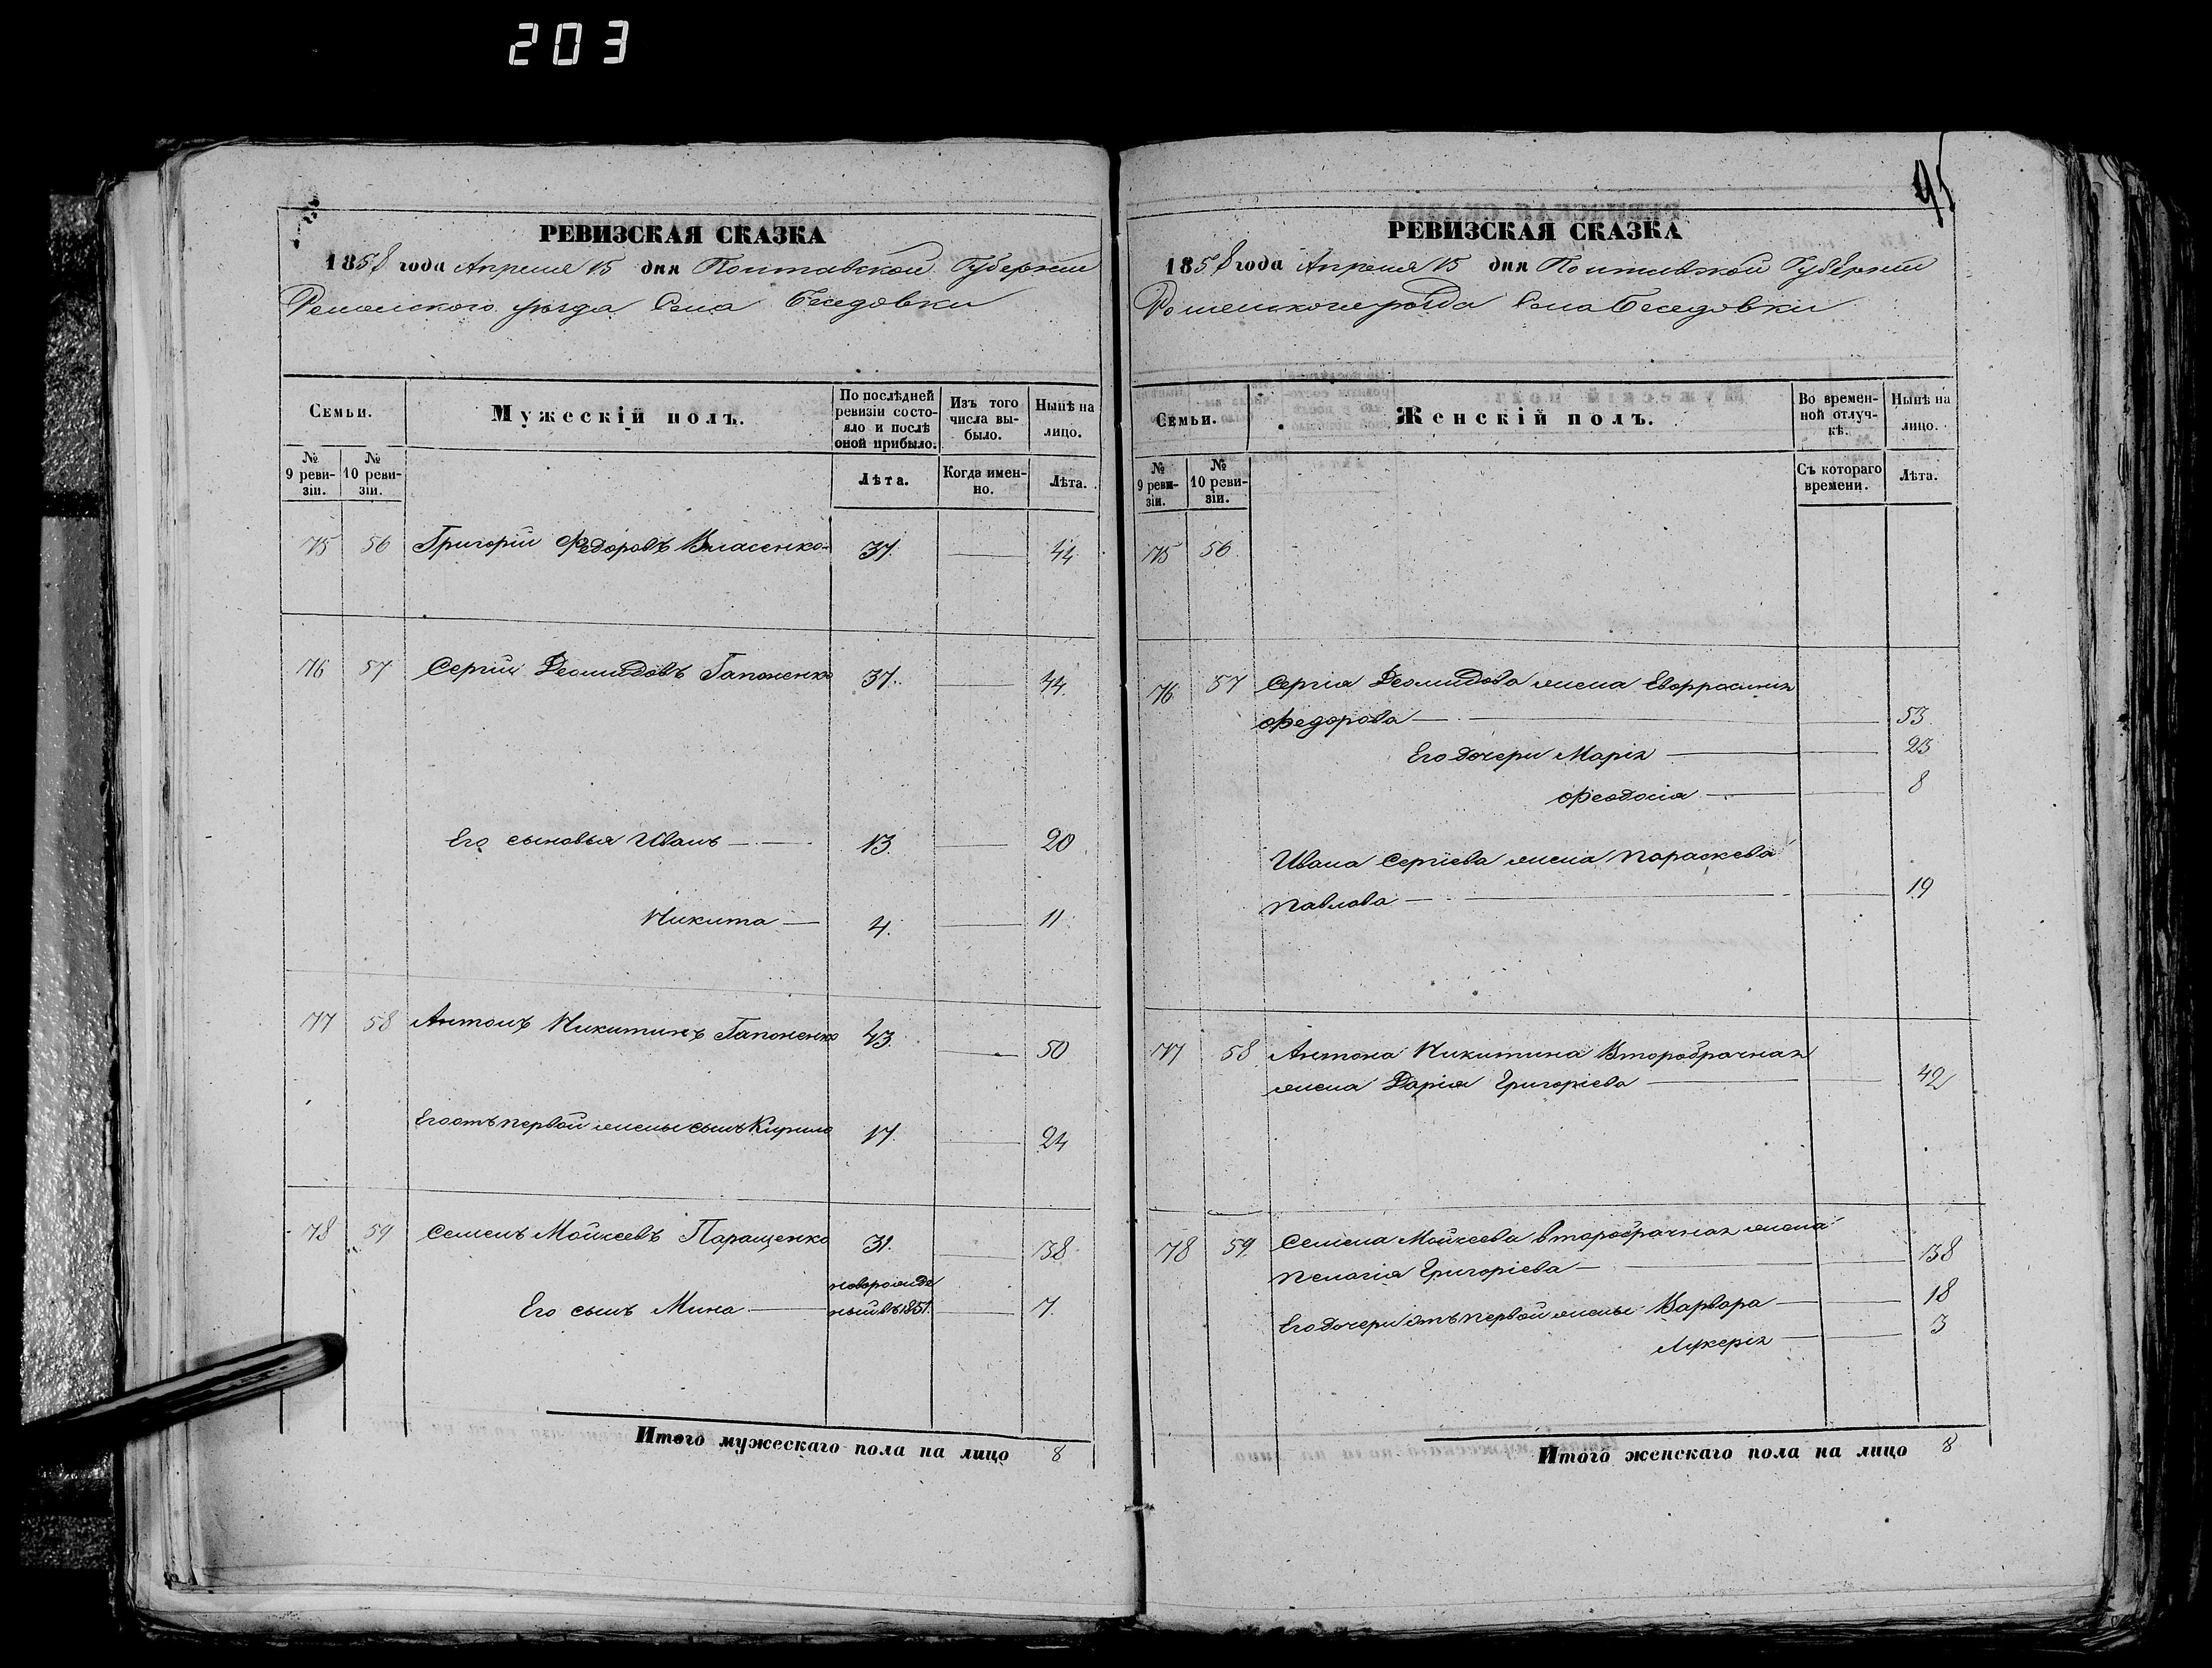 203
РЕВИЗСКАЯ СКАЗКА
1858 года Апреля 15 дня Полтавской Губернии
Роменского уезда Села Беседовки
Семьи.
Мужескій полъ.
По послѣдней ревизіи состояло и послѣ оной прибыло.
Изъ того числа выбыло.
Нынѣ на лицо.
№ 9 ревизіи.
№ 10 ревизіи.
Лѣта.
Когда именно.
Лѣта.
75 56 Григорій Федоровъ Власенко 37. 44
76 57 Сергій Деомидовъ Гапоненко 37. 44.
Его сыновья Иванъ 13. 20
Никита 4. 11
77 58 Антонъ Никитинъ Гапоненко 43. 50
Его отъ первой жены сынъ Кирило 17. 24
78 59 Семенъ Мойсеевъ Паращенко 31. 38
Его сынъ Мина новорожде
ный въ 1851. 7
Итого мужескаго пола на лицо 8
95
РЕВИЗСКАЯ СКАЗКА
1858 года Апреля 15 дня Полтавской Губерніи
Роменского уезда Села Беседовки
Семьи.
Женскій полъ.
Во временной отлучкѣ.
Нынѣ на лицо.
№ 9 ревизіи.
№ 10 ревизіи.
Съ котораго времени.
Лѣта.
75 56
76 57 Сергія Деомидова жена Евфрасинія
Федорова 53
Его дочери Марія 23
Феодосія 8
Ивана Сергіева жена Параскева
Павлова 19
77 58 Антона Никитина Второбрачная
жена Дарія Григоріева 42
78 59 Семена Мойсеева второбрачная жена
Пелагія Григоріева 38
Его дочери отъ первой жены Варвара 18
Лукерія 3
Итого женскаго пола на лицо 8